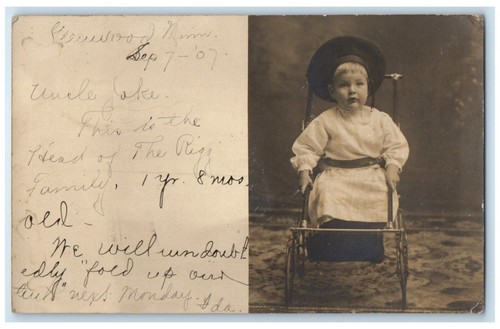 Glenwood Minn.
Sep 7-'07.
Uncle Jake.
This is the
Head of The Rigg
Family, 1 yr. 8 mos.
old-
We will undoubt
edly "fold up our
tent" next Monday. Ida.